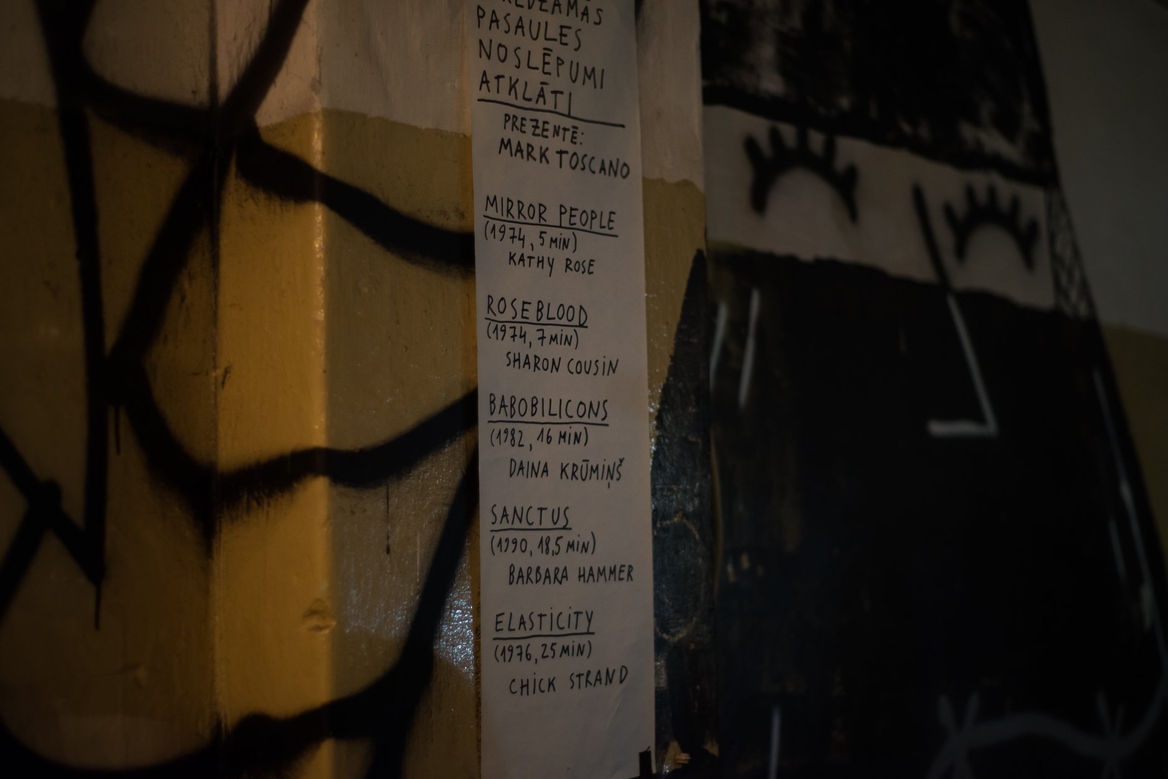 PASAULES
NOSLĒPUMI
ATKLĀTI
PREZENTĒ:
MARK TOSCANO
MIRROR PEOPLE
(1974, 5 MIN)
KATHY ROSE
ROSEBLOOD
(1974, 7 MIN)
SHARON COUSIN
BABOBILICONS
(1982, 16 MIN)
DAINA KRŪMIŅŠ
SANCTUS
(1990, 18,5 MIN)
BARBARA HAMMER
ELASTICITY
(1976, 25 MIN)
CHICK STRAND